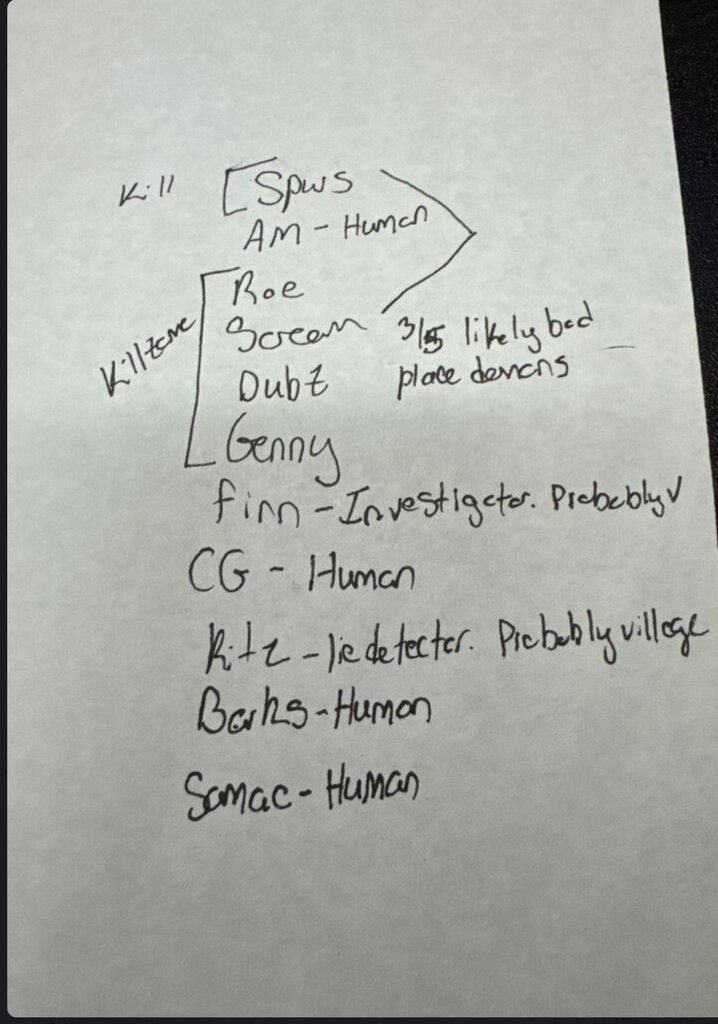 Kill [ Spws
AM - Human
Roe
Killzone [ Scream 3/5 likely bad
Dubz place demons
Genny
Finn - Investigator. Probably V
CG - Human
Ritz - lie detector. Probably village
Barks - Human
Samac - Human